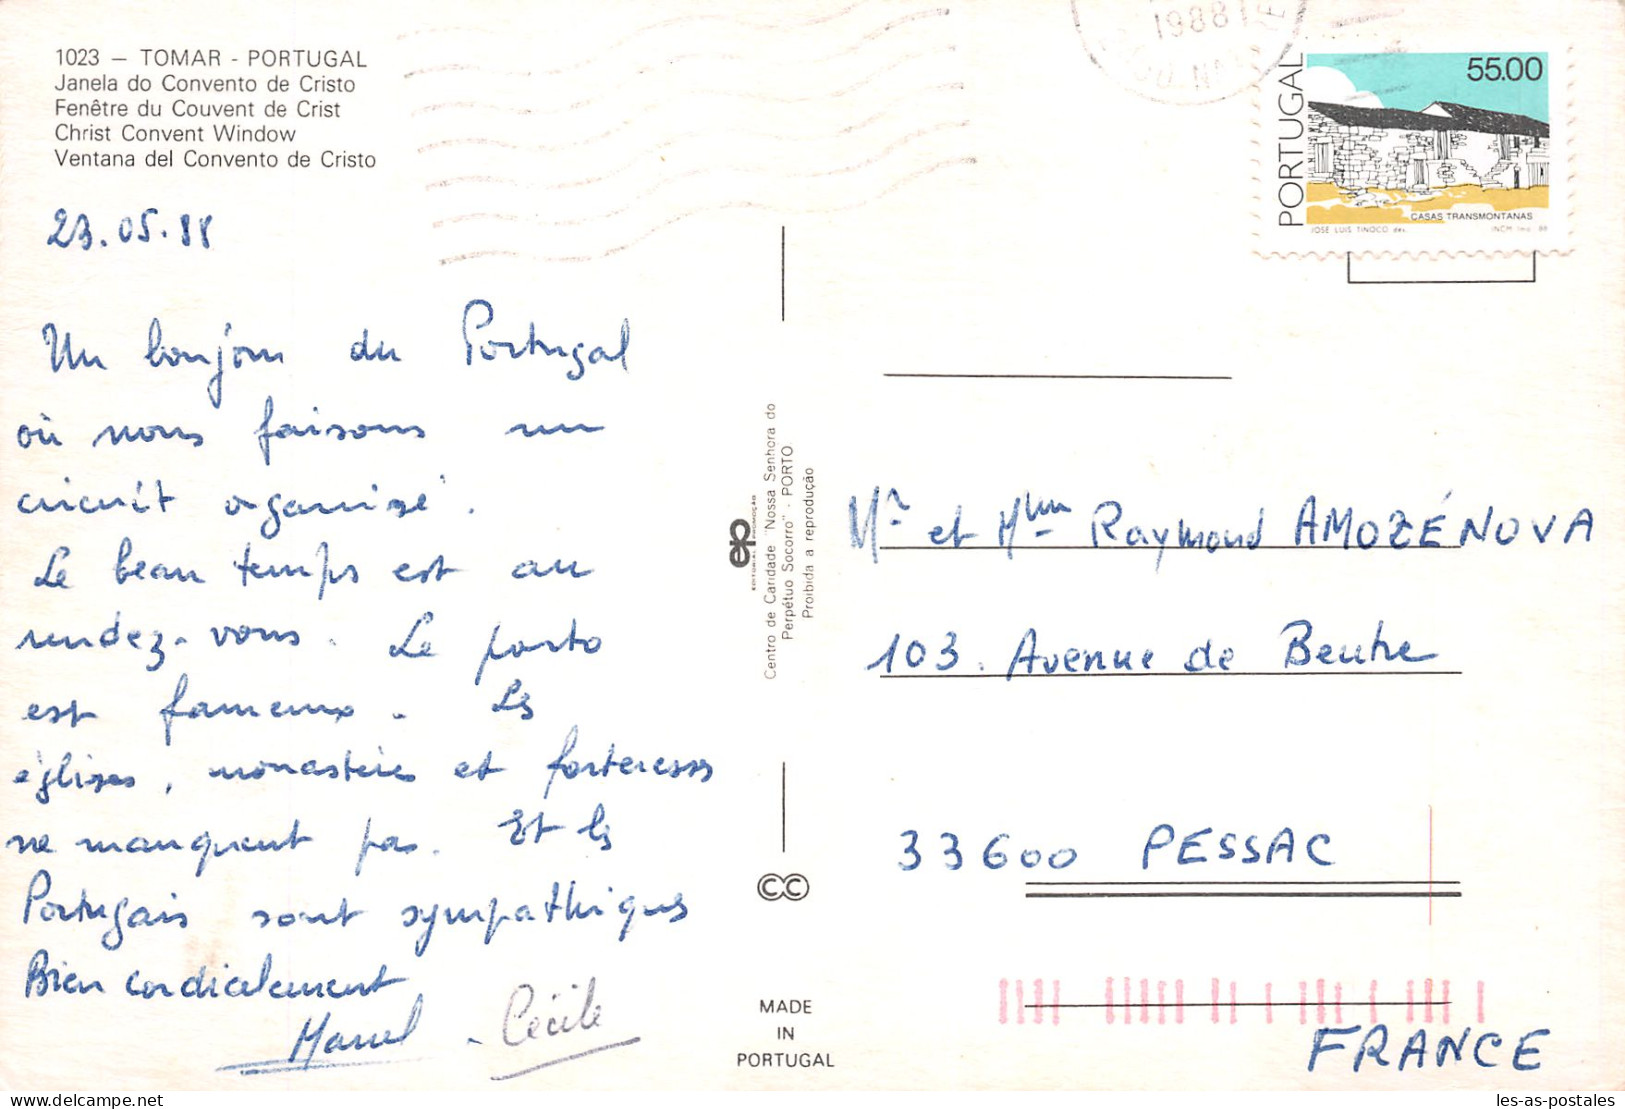 1023 – TOMAR - PORTUGAL
Janela do Convento de Cristo
Fenêtre du Couvent de Crist
Christ Convent Window
Ventana del Convento de Cristo
23.05.88
Un bonjour du Portugal
où nous faisons un
circuit organisé.
Le beau temps est au
rendez-vous. Le porto
est fameux. Les
églises, monastères et forteresses
ne manquent pas. Et les
Portugais sont sympathiques
Bien cordialement
Marcel - Cécile
ep
EDITORIAL PROMOÇÃO
Centro de Caridade "Nossa Senhora do
Perpétuo Socorro" - PORTO
Proibida a reprodução
CC
MADE
IN
PORTUGAL
1988
PORTUGAL
55.00
CASAS TRANSMONTANAS
JOSÉ LUIS TINOCO des.
INCM imp. 88
Mr et Mme Raymond AMOZÉNOVA
103. Avenue de Beutre
33600 PESSAC
FRANCE
delcampe.net
les-as-postales